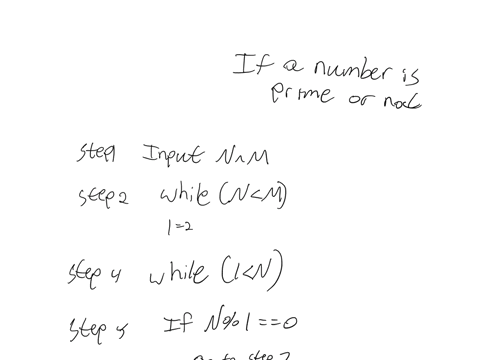 If a number is
prime or not
step1 Input N, M
step2 while (N<M)
I=2
step 4 while (I<N)
step 5 If N%I==0
go to step 7